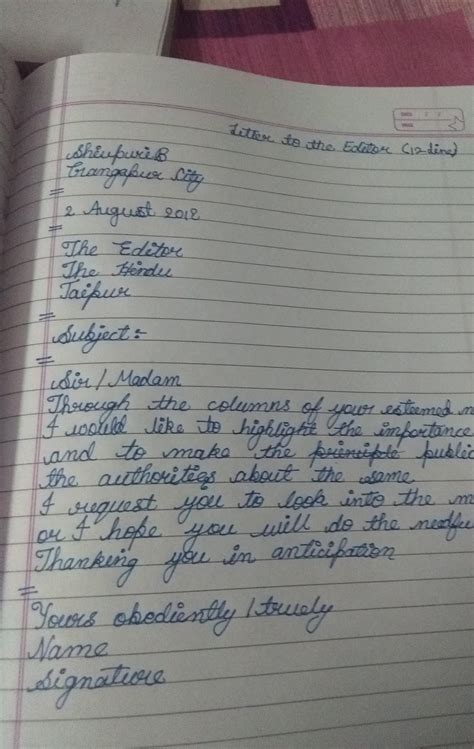 Letter to the Editor (12-line)
Shivpuri B
Gangapur City
2 August 2012
The Editor
The Hindu
Jaipur
Subject:-
Sir / Madam
Through the columns of your esteemed
I would like to highlight the importance
and to make the principle public
the authorities about the same
I request you to look into the
or I hope you will do the needful
Thanking you in anticipation
Yours obediently / truely
Name
Signature